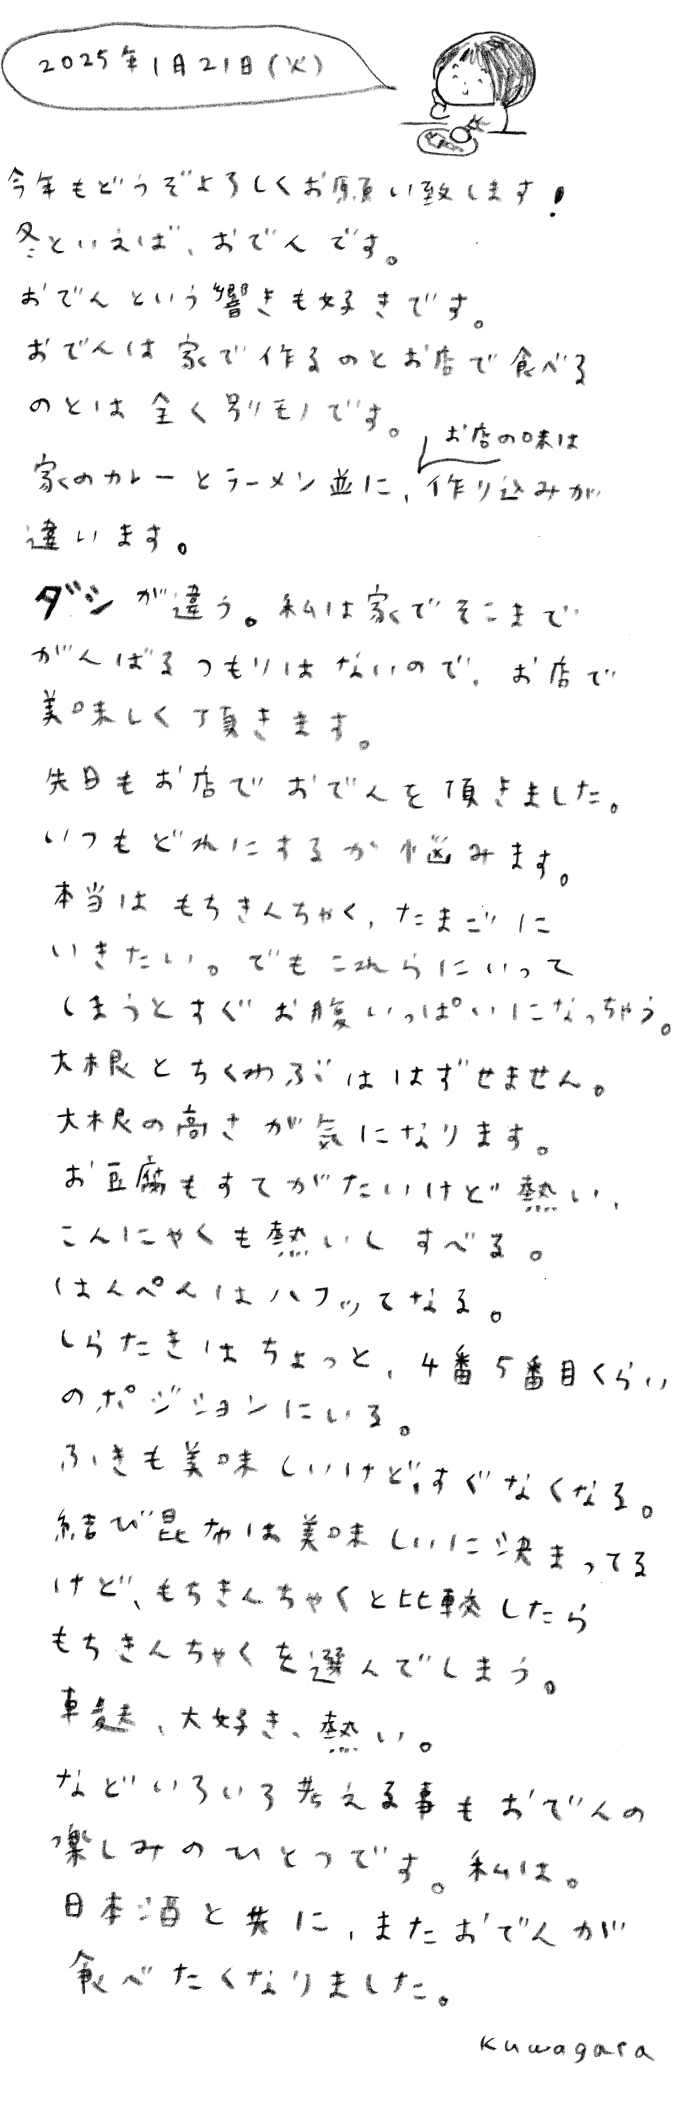 2025年1月21日(火)
今年もどうぞよろしくお願い致します!
冬といえば、おでんです。
おでんという響きも好きです。
おでんは家で作るのとお店で食べる
のとは全く別モノです。
お店の味は
家のカレーとラーメン並に、作り込みが
違います。
ダシが違う。私は家でそこまで
がんばるつもりはないので、お店で
美味しく頂きます。
先日もお店でおでんを頂きました。
いつもどれにするか悩みます。
本当はもちきんちゃく、たまごに
いきたい。でもこれらにいって
しまうとすぐお腹いっぱいになっちゃう。
大根とちくわぶははずせません。
大根の高さが気になります。
お豆腐もすてがたいけど熱い、
こんにゃくも熱いしすべる。
はんぺんはハフッてなる。
しらたきはちょっと、4番5番目くらい
のポジションにいる。
ふきも美味しいけど、すぐなくなる。
結び昆布は美味しいに決まってる
けど、もちきんちゃくと比較したら
もちきんちゃくを選んでしまう。
車麩、大好き、熱い。
などいろいろ考える事もおでんの
楽しみのひとつです。私は。
日本酒と共に、またおでんが
食べたくなりました。
Kuwagara